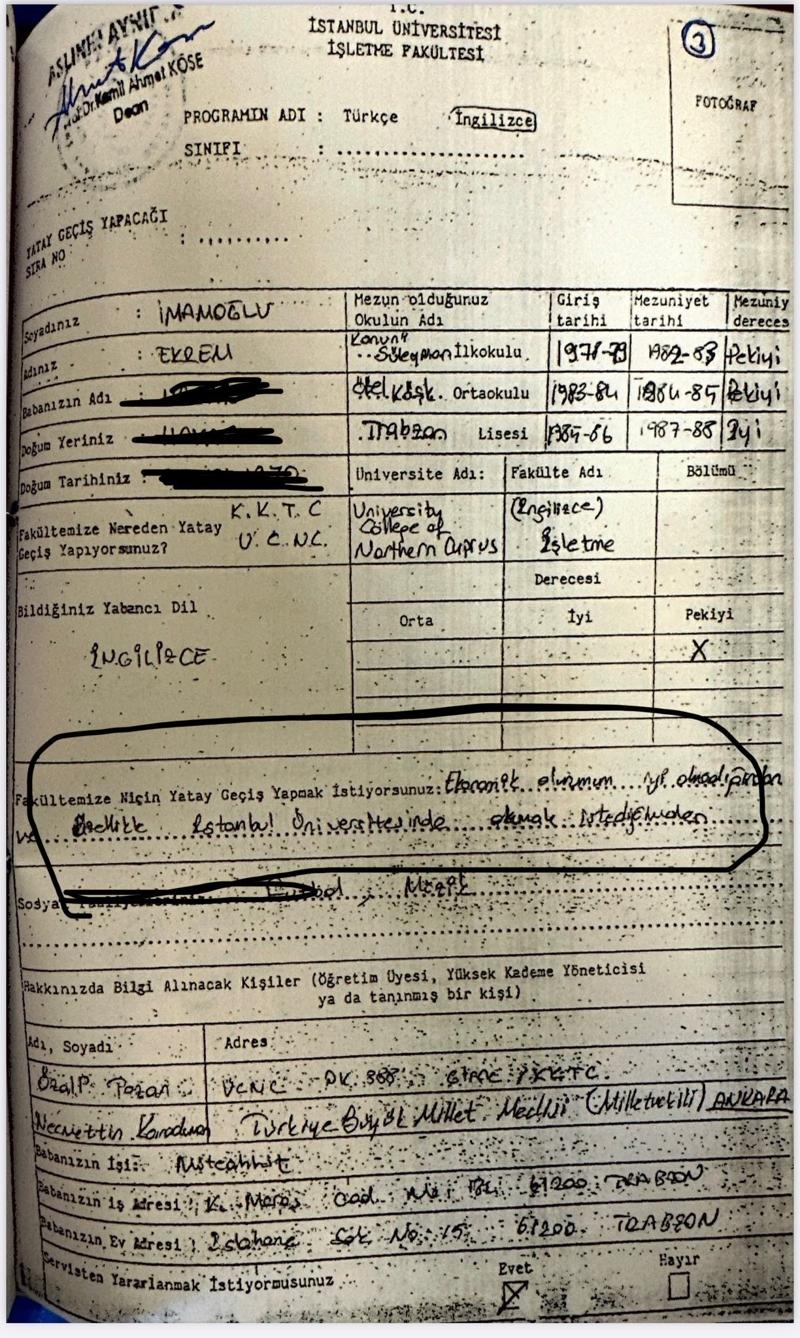 T.C.
İSTANBUL ÜNİVERSİTESİ
İŞLETME FAKÜLTESİ
3
ASLININ AYNI
Prof.Dr.Kamil Ahmet KÖSE
Dean
FOTOĞRAF
PROGRAMIN ADI : Türkçe İngilizce
SINIFI : ........................
YATAY GEÇİŞ YAPACAĞI
SIRA NO : ..........
Soyadınız : İMAMOĞLU
Mezun olduğunuz Okulun Adı Giriş tarihi Mezuniyet tarihi Mezuniy dereces
Adınız : EKREM
Kanuni Süleyman İlkokulu 1978-79 1982-83 Pekiyi
Babanızın Adı :
Özel Köşk. Ortaokulu 1983-84 1984-85 Pekiyi
Doğum Yeriniz :
.Trabzon Lisesi 1985-86 1987-88 İyi
Doğum Tarihiniz :
Üniversite Adı: Fakülte Adı Bölümü
Fakültemize Nereden Yatay Geçiş Yapıyorsunuz? K.K.T.C U.C.N.C.
University College of Northern Cyprus (İngilizce) İşletme
Derecesi
Bildiğiniz Yabancı Dil Orta İyi Pekiyi
İNGİLİZCE X
Fakültemize Niçin Yatay Geçiş Yapmak İstiyorsunuz: Ekonomik durumum iyi olmadığından
ve özellikle İstanbul Üniversitesinde okumak istediğimden
Sosyal Futbol, Müzik
Hakkınızda Bilgi Alınacak Kişiler (Öğretim Üyesi, Yüksek Kademe Yöneticisi
ya da tanınmış bir kişi)
Adı, Soyadı Adres
Özalp UCNC PK 388 GİRNE / KKTC.
Necmettin Karaduman Türkiye Büyük Millet Meclisi (Milletvekili) ANKARA
Babanızın İşi: Müteahhit
Babanızın İş Adresi : K. Maraş Cad. No: 61200 TRABZON
Babanızın Ev Adresi : Sok No: 15 61200 TRABZON
Servisten Yararlanmak İstiyormusunuz Evet Hayır